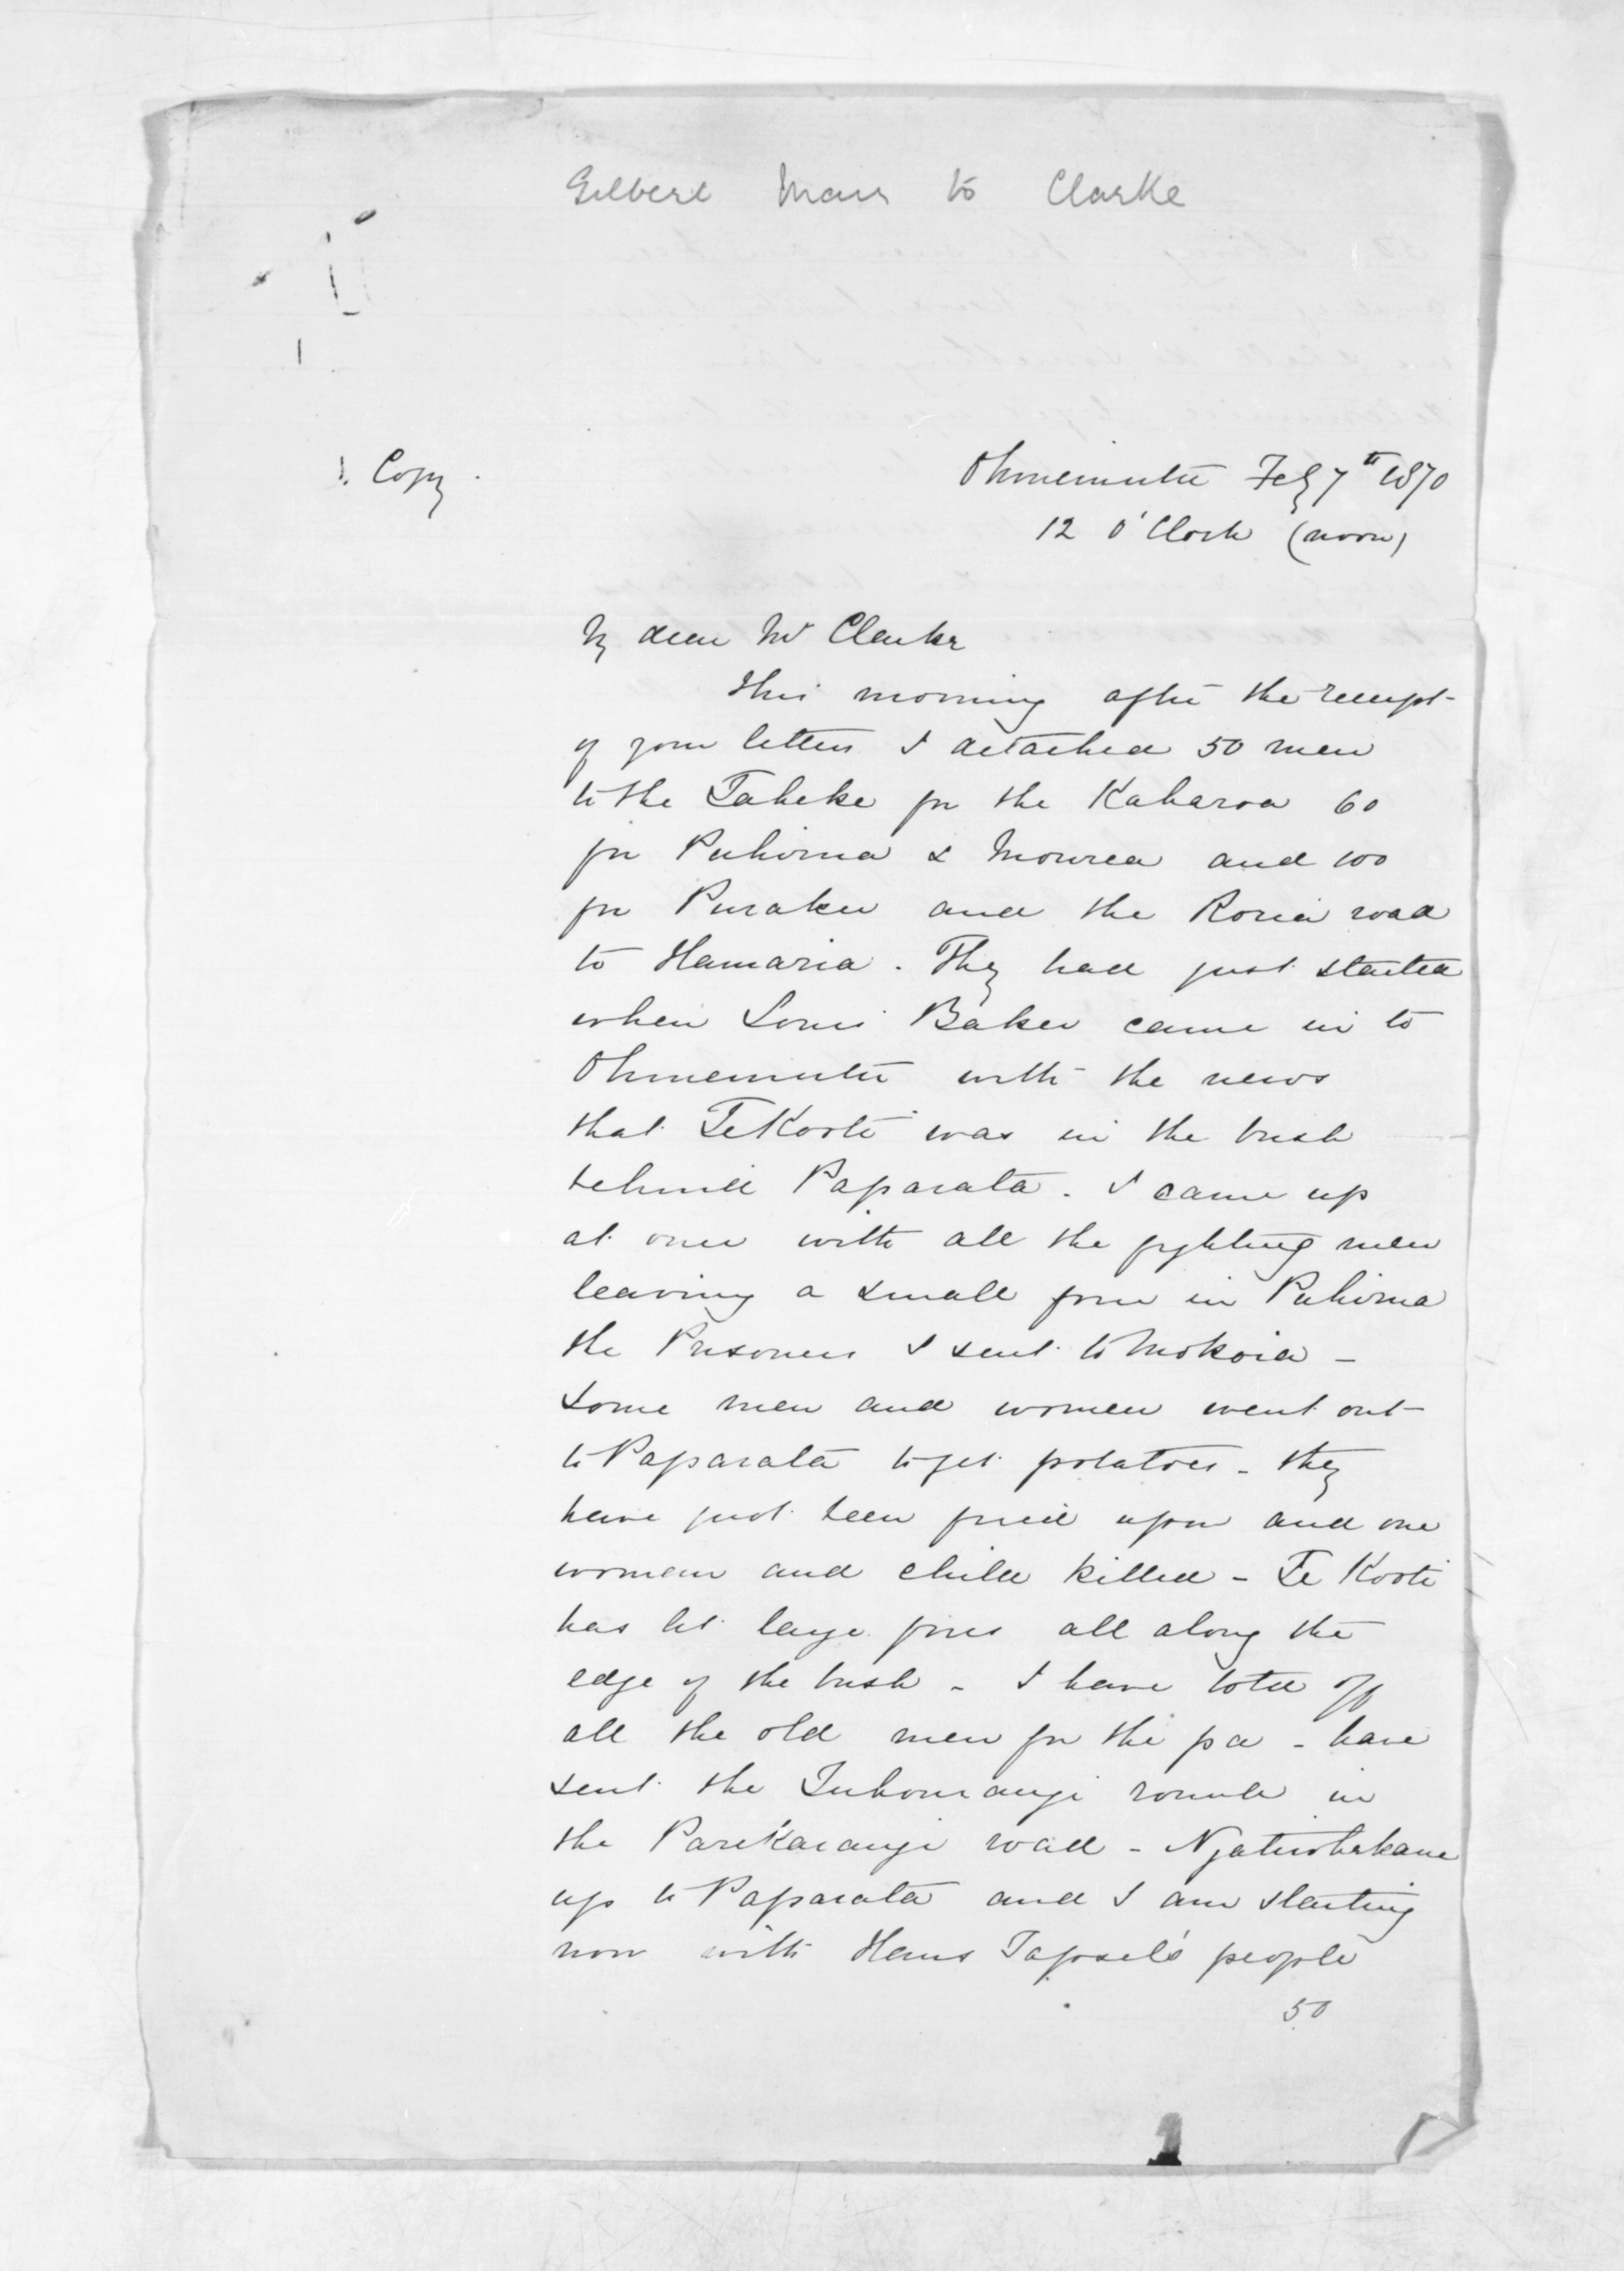 Gilbert Mair to Clarke
1. Copy.
Ohinemutu Feby 7th 1870
12 O'Clock (noon)
My dear Mr Clarke
This morning after the receipt
of your letters I detached 50 men
to the Taheke for the Kaharoa 60
for Puhirua & Mourea and 100
for Puraku and the Rotia road
to Hamaria. They had just started
when Louis Baker came in to
Ohinemutu with the news
that Te Kooti was in the bush
behind Paparata. I came up
at once with all the fighting men
leaving a small force in Puhirua
the Prisoners I sent to Mokoia -
Some men and women went out
to Paparata to get potatoes - they
have just been fired upon and one
woman and child killed - Te Kooti
has lit large fires all along the
edge of the bush - I have told off
all the old men for the pa - have
sent the Tuhourangi round in
the Parekarangi road - Ngatiwhakaue
up to Paparata and I am starting
now with Hans Tapsel's people
50
1